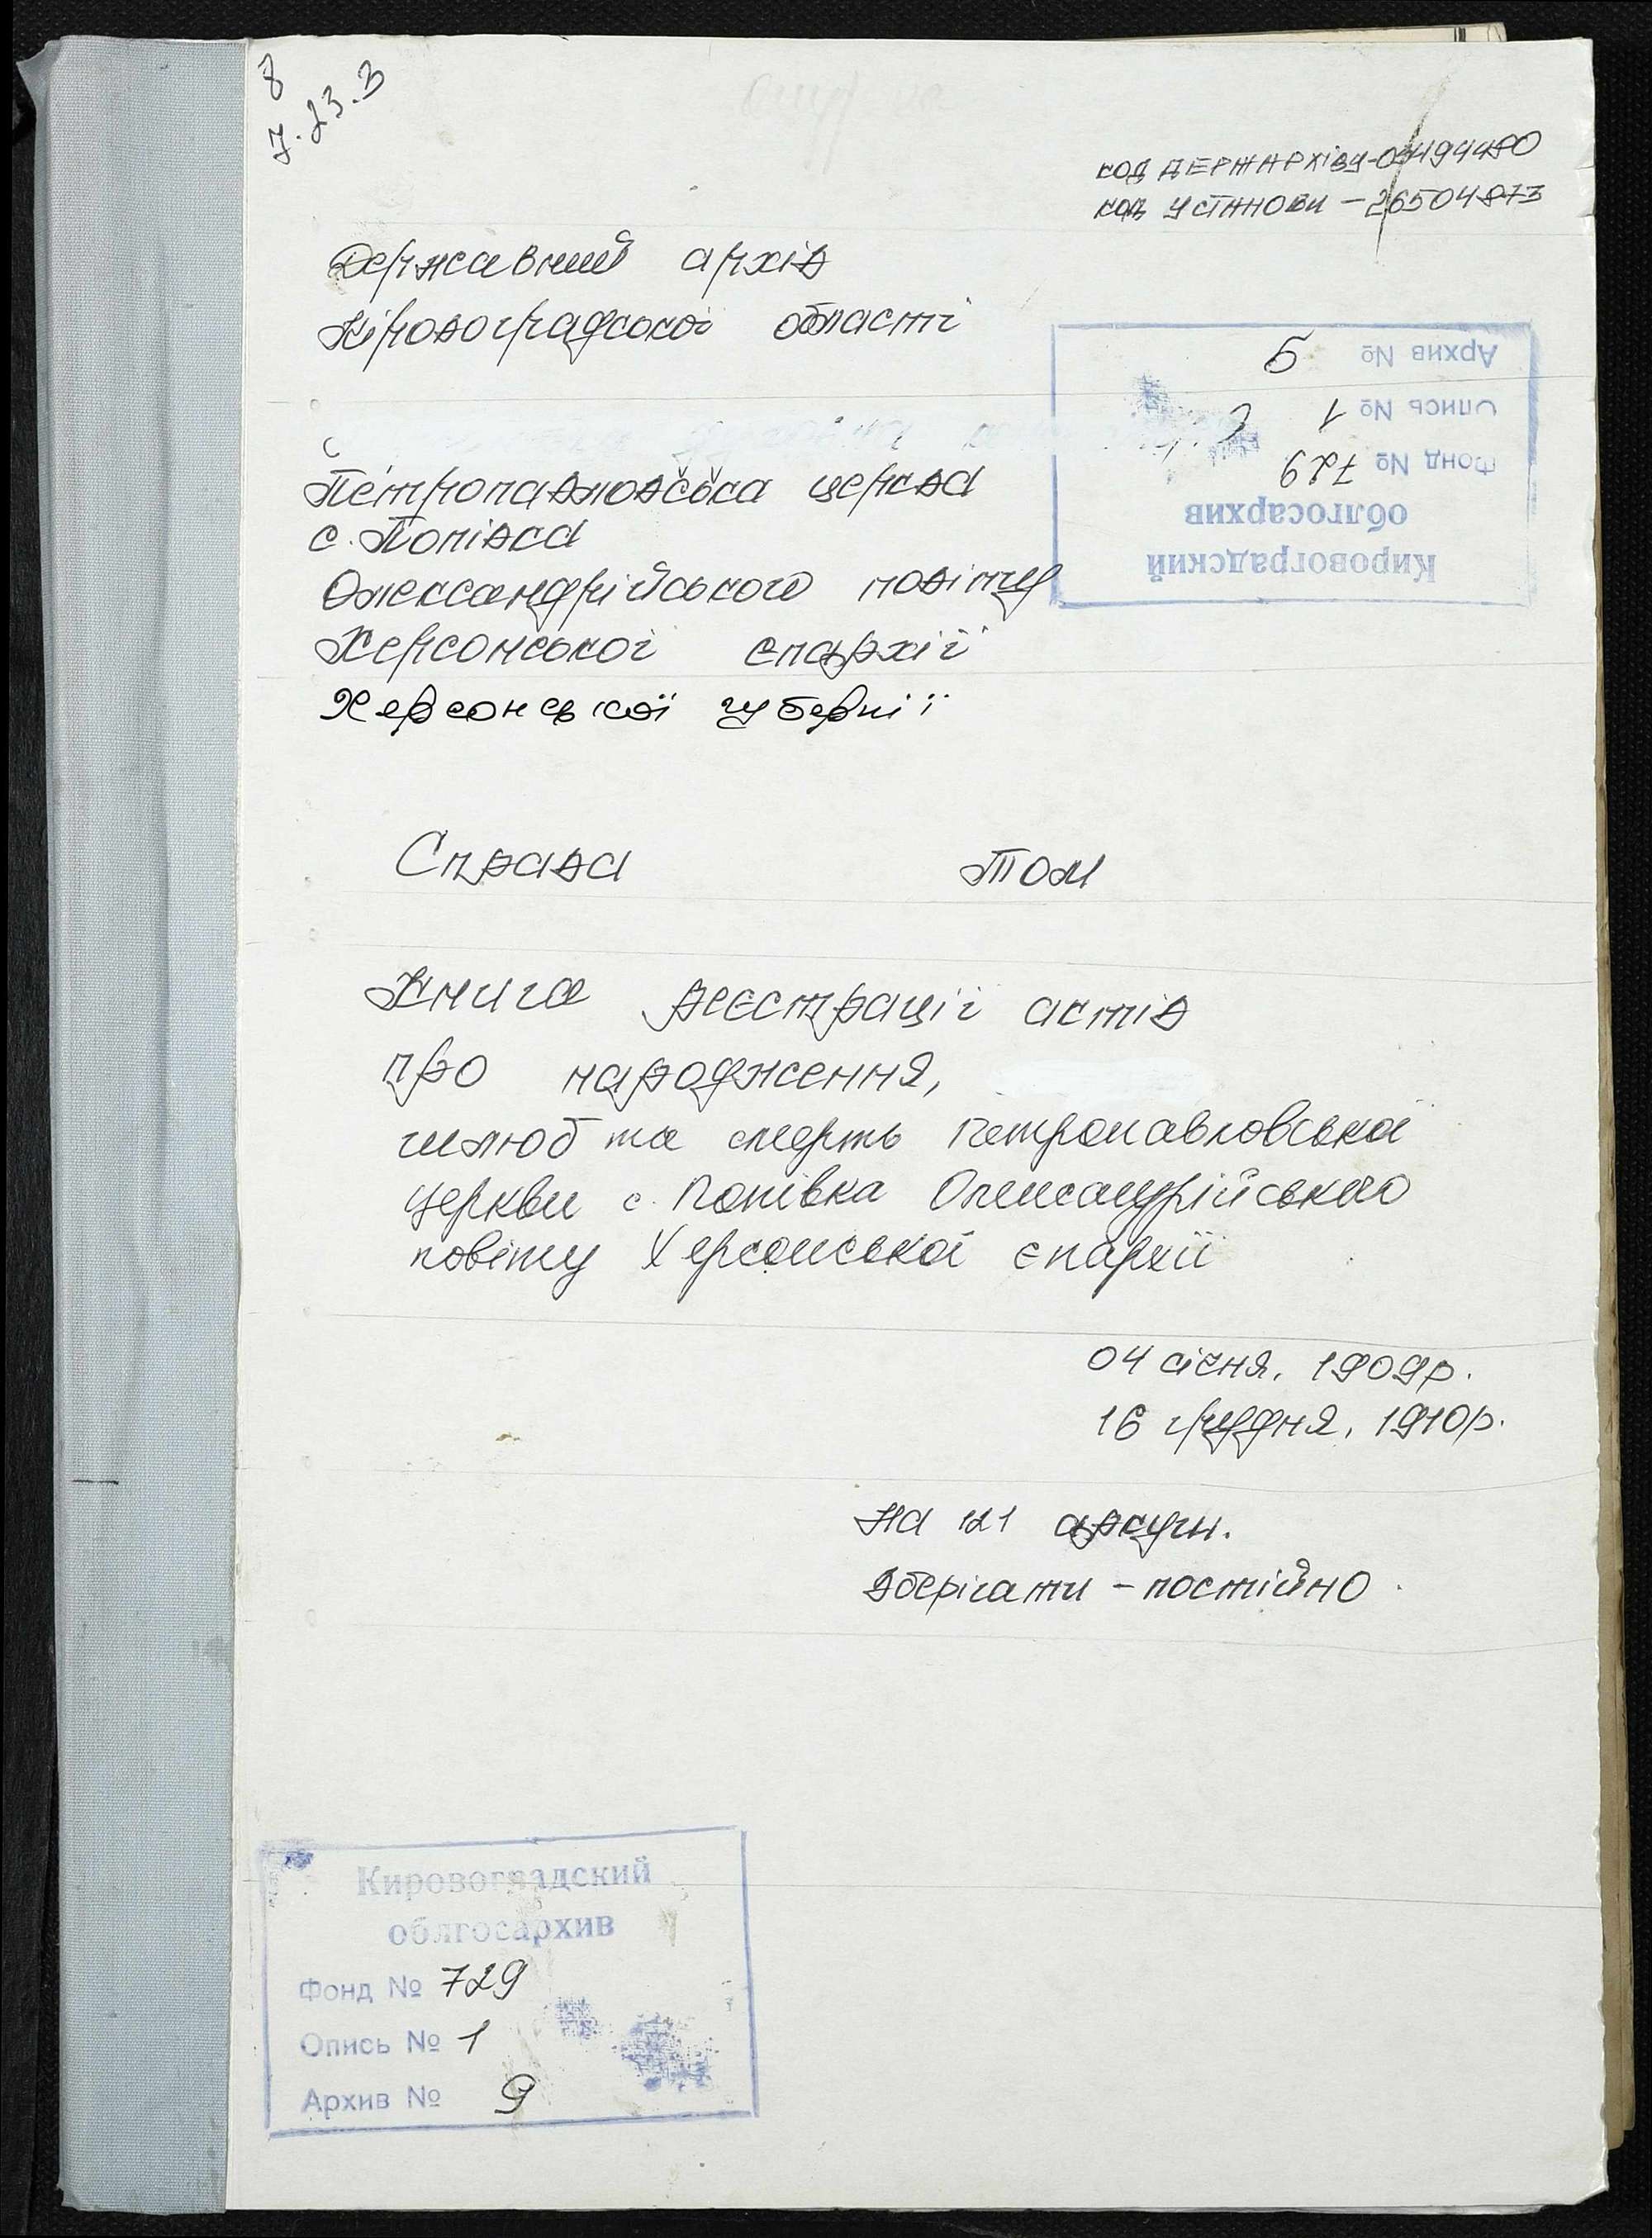 8
7.23.3
код ДЕРЖАРХіВУ-04494480
код УСТАНОВИ - 26504873
Державний архів
Кіровоградської області
Архив № 9
Опись № 1
Фонд № 729
облгосархив
Кировоградский
Петропавловська церква
с. Попівка
Олександрійського повіту
Херсонської єпархії
Херсонської губернії
Справа Том
Книга реєстрації актів
про народження,
шлюб та смерть Петропавловської
церкви с. Попівка Олександрійського
повіту Херсонської єпархії
04 січня, 1909р.
16 грудня, 1910р.
на 121 аркуш.
Зберігати - постійно
Кировоградский
облгосархив
Фонд № 729
Опись № 1
Архив № 9